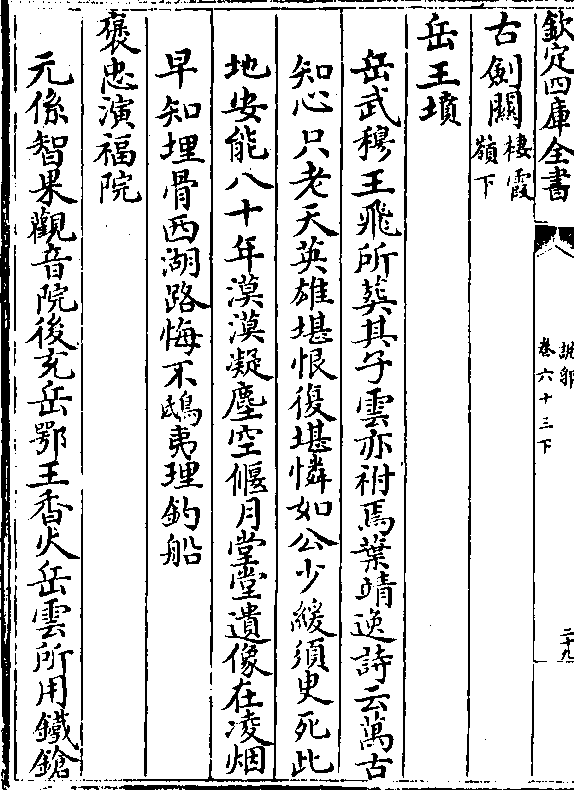 欽定四庫全書
說郛
卷六十三下
二十九
古劍關棲霞
嶺下
岳王墳
岳武穆王飛所葬其子雲亦祔焉葉靖逸詩云萬古
知心只老天英雄堪恨復堪憐如公少緩須臾死此
地安能八十年漠漠凝塵空偃月堂堂遺像在凌烟
早知埋骨西湖路悔不鴟夷理釣船
褒忠演福院
元係智果觀音院後充岳鄂王香火岳雲所用鐵鎗